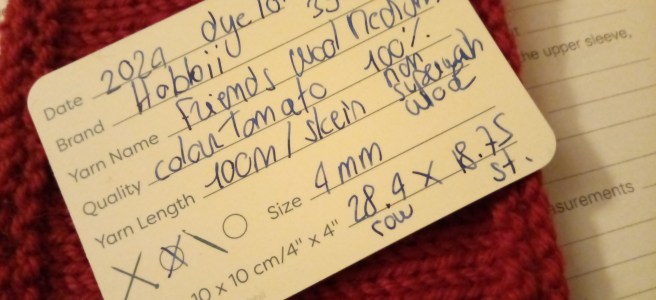 Date 2024 dye lo
Brand Hobbii
Yarn Name Friends Wool Medium
Quality colour tomato 100% non superwash wool
Yarn Length 100m / skein
Size 4 mm
10 x 10 cm/4" x 4" 28.4 x 18.75
row st.
he upper sleeve,
surements